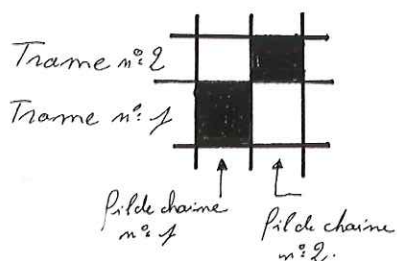 Trame n°: 2
Trame n°: 1
fil de chaine
n°: 1
fil de chaine
n°: 2.